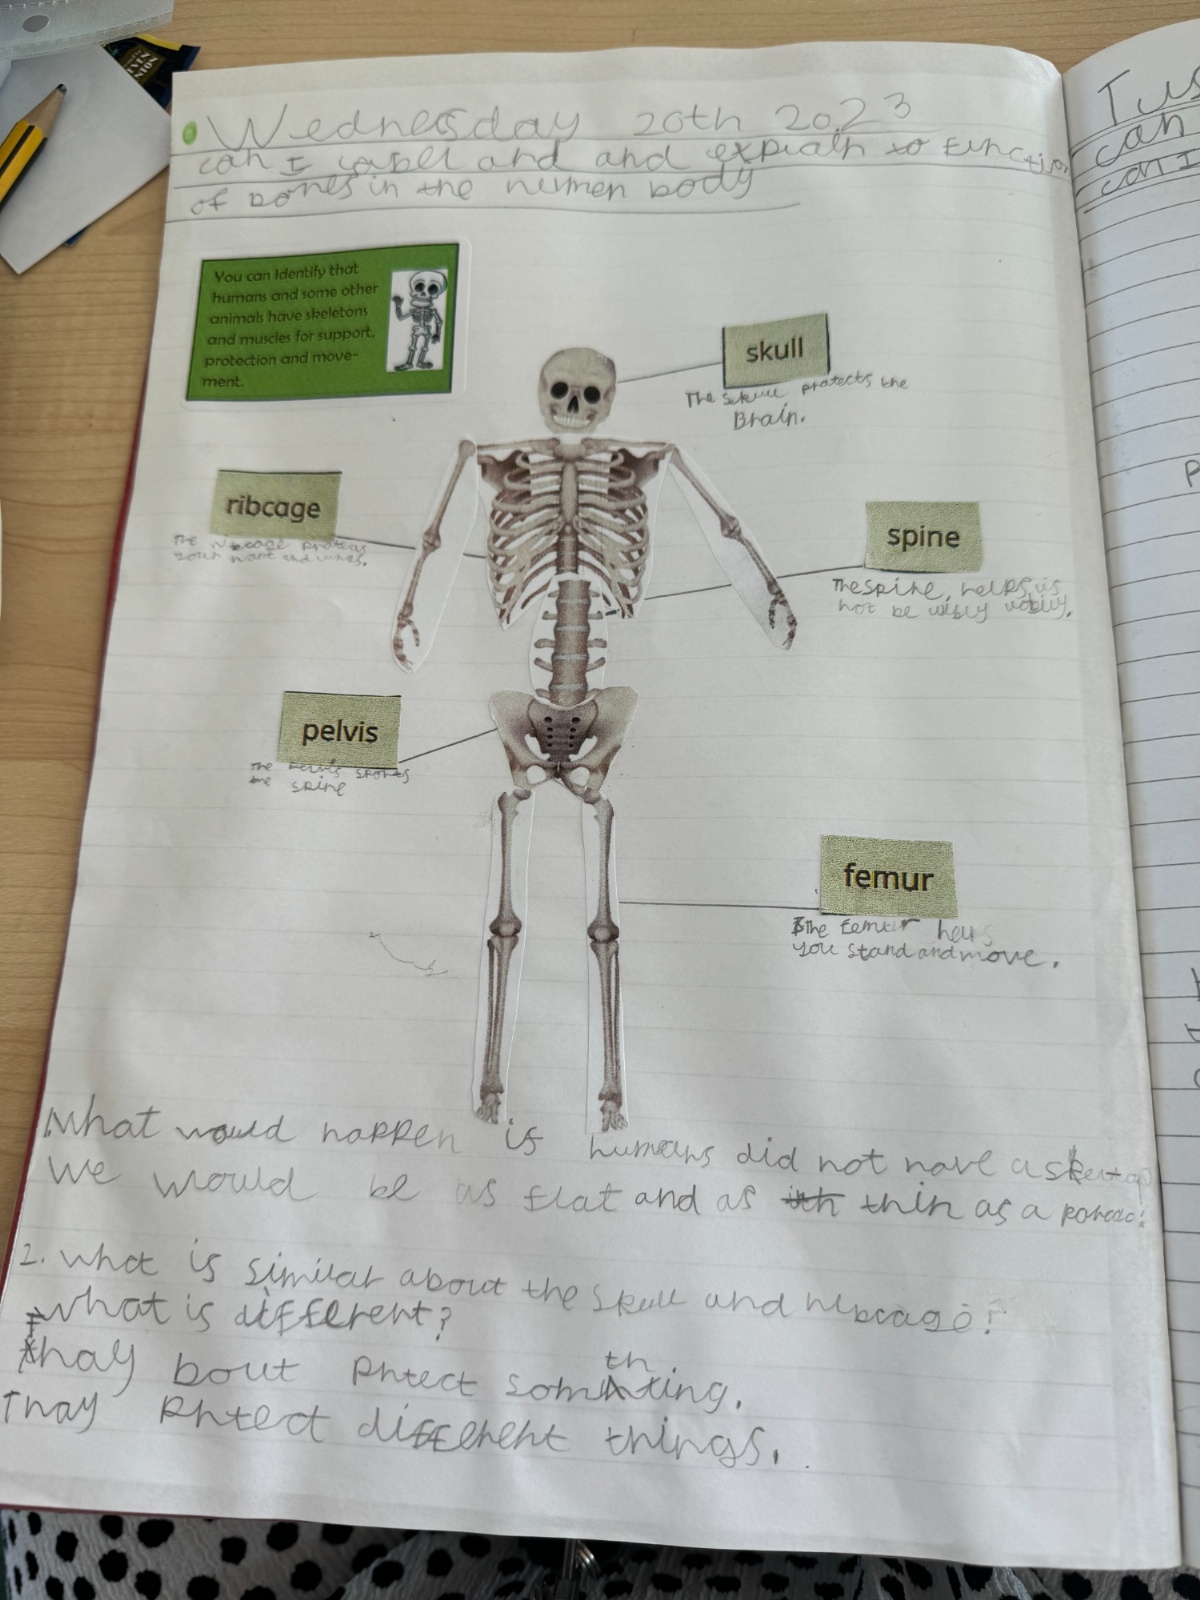 Wednesday 20th 2023
can I label and and explain to function
of bones in the human body
You can Identify that
humans and some other
animals have skeletons
and muscles for support,
protection and move-
ment.
skull
The skull protects the
Brain.
ribcage
The ribcage protects
your and lungs.
spine
The spine, helps us
not be wibly wobily.
pelvis
The pelvis sports
the spine
femur
The femur helps
you stand and move.
What would happen is humans did not have a
We would be as flat and as thin as a
2. what is similar about the skull and ribcage?
what is different?
thay bout prtect somthing.
Thay prtect different things.
Tus
can
can I